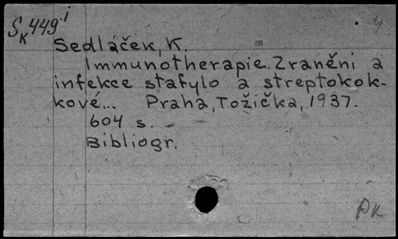 SK449-i
4
Sedláček, K.
Immunotherapie. Zranění a
infekce stafylo a streptokok-
kové... Praha, Tožička, 1937.
604 s.
Bibliogr.
PK